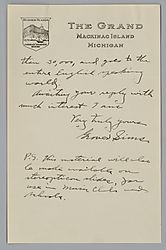 THE GRAND
MACKINAC ISLAND
MICHIGAN
than 30,000 and goes to the
entire English speaking
world.
Awaiting your reply with
much interest I am
Very truly yours
Sims
P.S. This material will also
be made available on
stereopticon slides, for
use in Music Clubs and
schools.